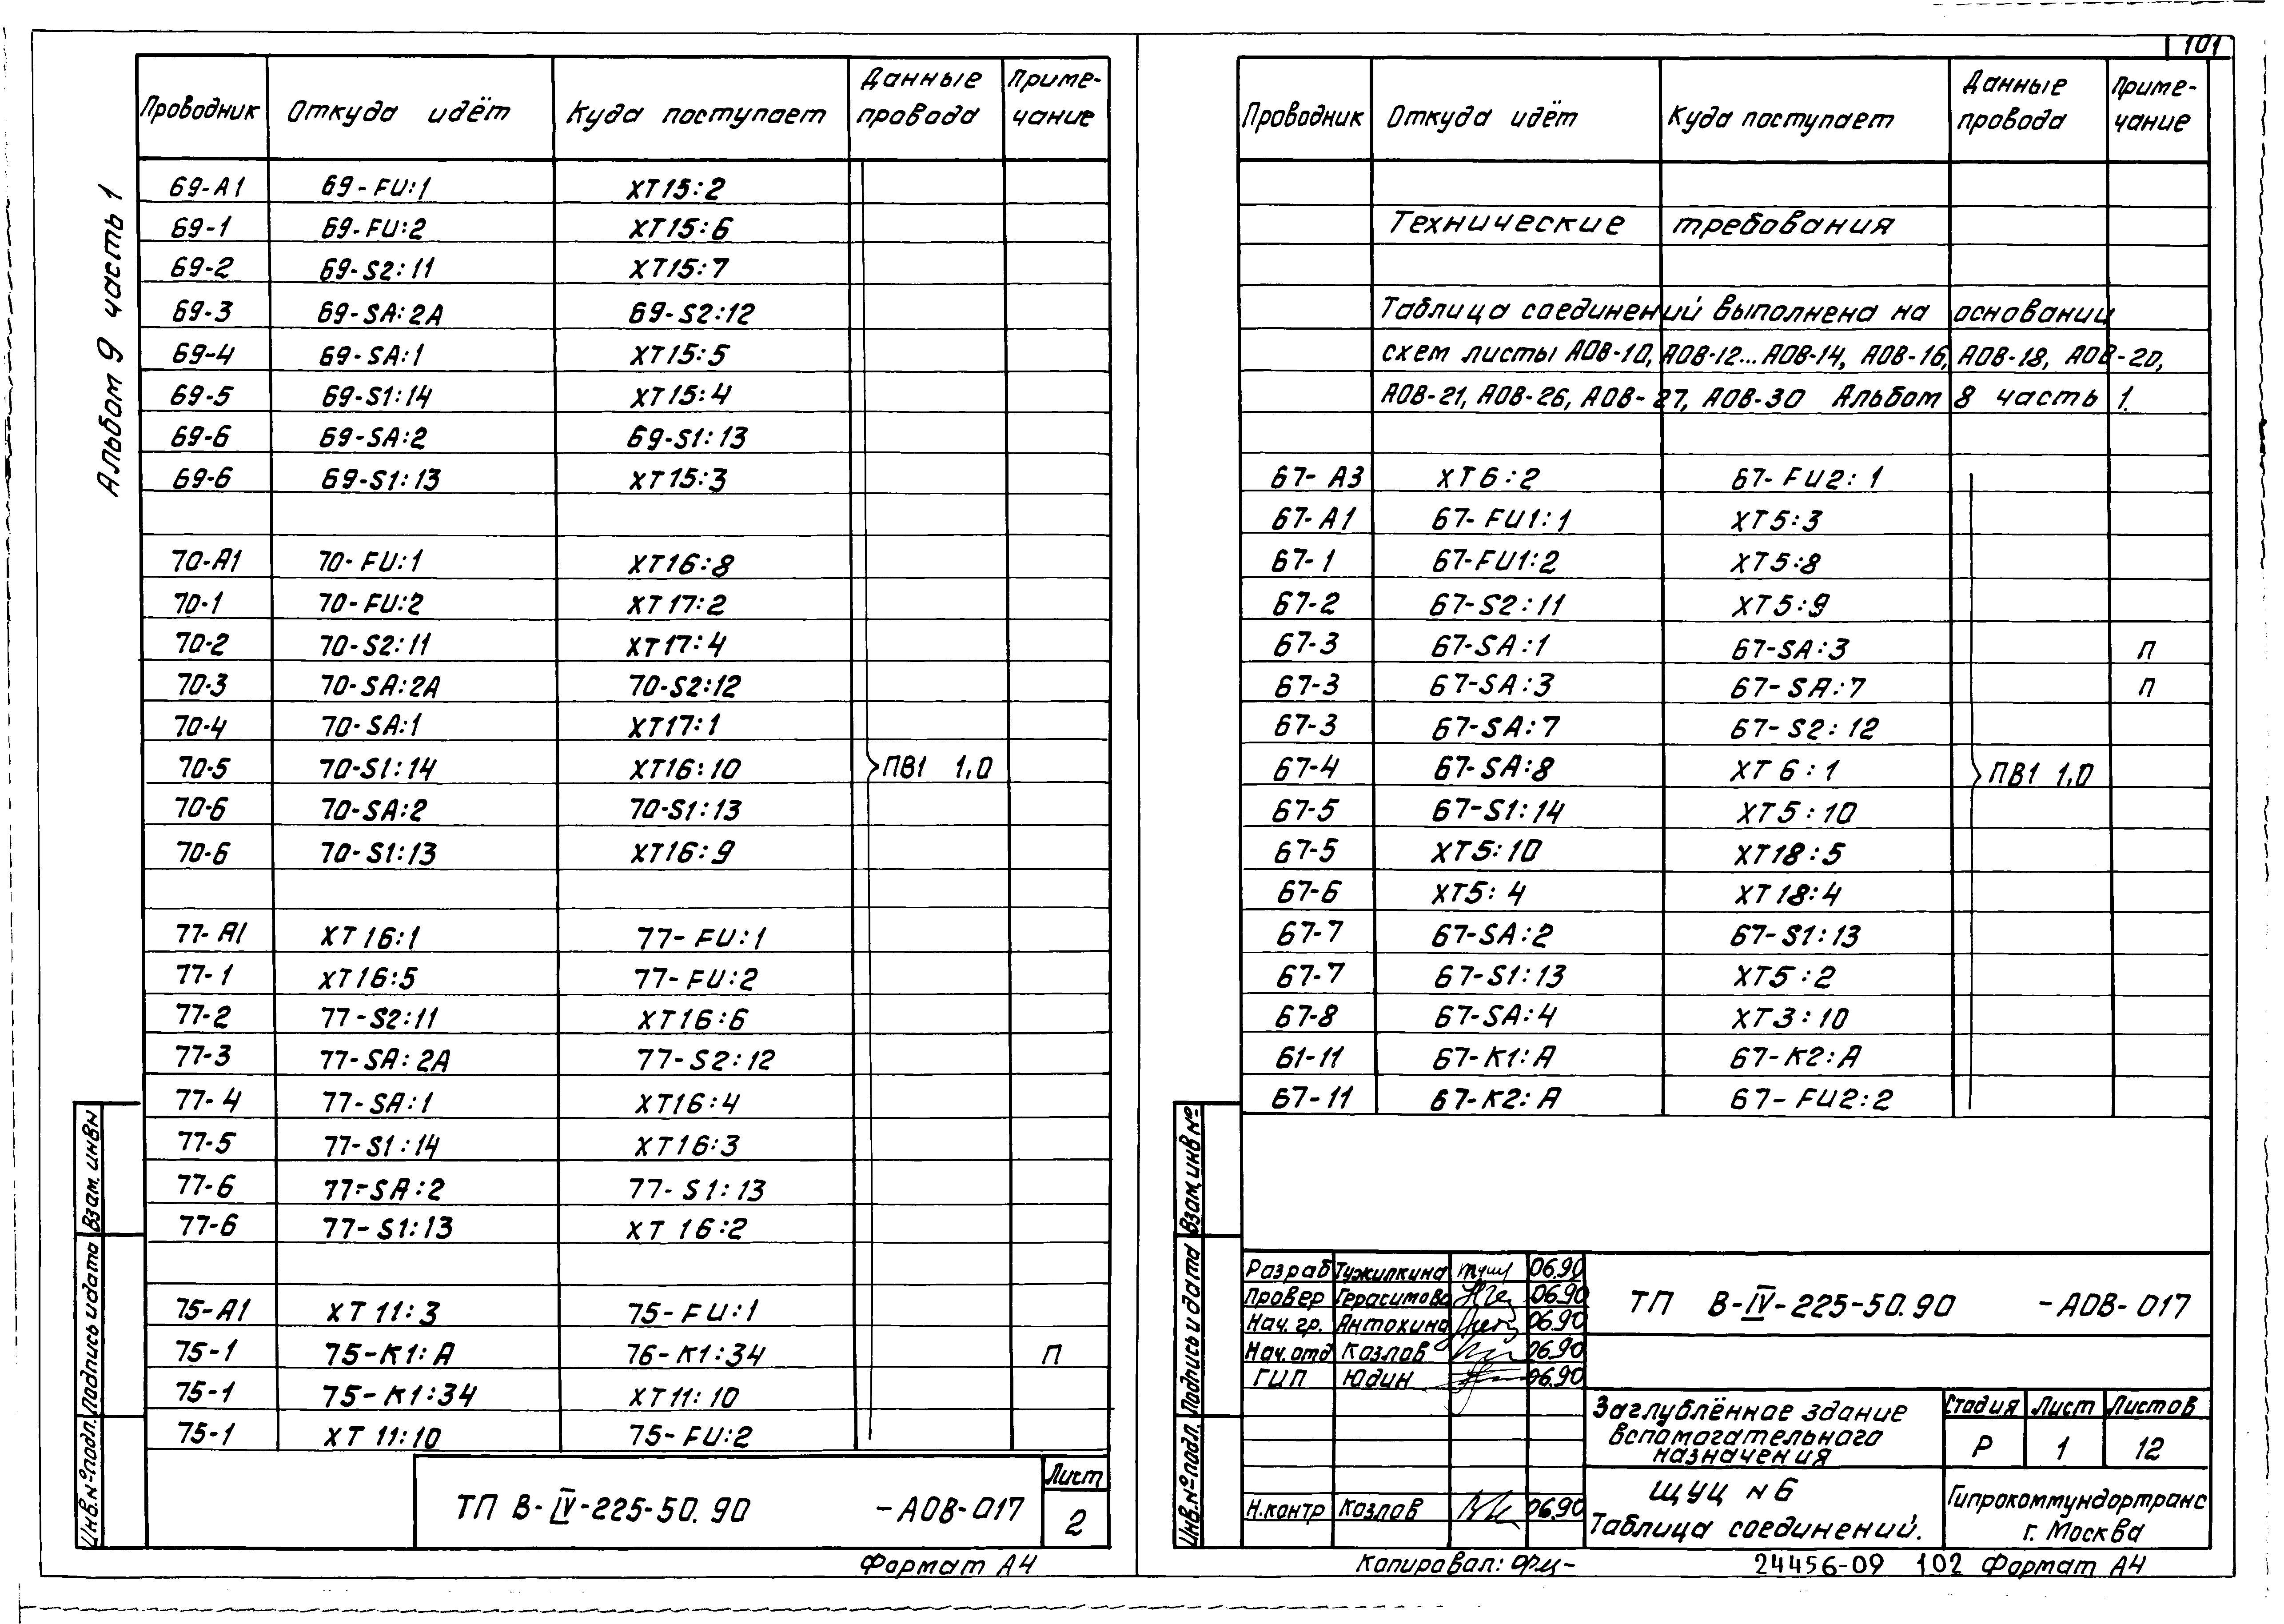 101
Альбом 9 часть 1
Проводник Откуда идёт Куда поступает Данные провода Приме-чание
69-А1 69-FU:1 XT15:2
69-1 69-FU:2 XT15:6
69-2 69-S2:11 XT15:7
69-3 69-SA:2A 69-S2:12
69-4 69-SA:1 XT15:5
69-5 69-S1:14 XT15:4
69-6 69-SA:2 69-S1:13
69-6 69-S1:13 XT15:3
70-А1 70-FU:1 XT16:8
70-1 70-FU:2 XT17:2
70-2 70-S2:11 XT17:4
70-3 70-SA:2A 70-S2:12
70-4 70-SA:1 XT17:1
70-5 70-S1:14 XT16:10 ПВ1 1,0
70-6 70-SA:2 70-S1:13
70-6 70-S1:13 XT16:9
77-А1 XT16:1 77-FU:1
77-1 XT16:5 77-FU:2
77-2 77-S2:11 XT16:6
77-3 77-SA:2A 77-S2:12
77-4 77-SA:1 XT16:4
77-5 77-S1:14 XT16:3
77-6 77-SA:2 77-S1:13
77-6 77-S1:13 XT 16:2
75-А1 XT 11:3 75-FU:1
75-1 75-K1:A 76-K1:34 П
75-1 75-K1:34 XT11:10
75-1 XT 11:10 75-FU:2
ТП В-IV-225-50.90 -АОВ-017
Лист
2
Формат А4
Взам. инв н
Подпись и дата
Инв. № подл.
Проводник Откуда идёт Куда поступает Данные провода Приме-чание
Технические требования
Таблица соединений выполнена на основании
схем листы АОВ-10, АОВ-12...АОВ-14, АОВ-16, АОВ-18, АОВ-20,
АОВ-21, АОВ-26, АОВ-27, АОВ-30 Альбом 8 часть 1.
67-А3 XT6:2 67-FU2:1
67-А1 67-FU1:1 XT5:3
67-1 67-FU1:2 XT5:8
67-2 67-S2:11 XT5:9
67-3 67-SA:1 67-SA:3 П
67-3 67-SA:3 67-SA:7 П
67-3 67-SA:7 67-S2:12
67-4 67-SA:8 XT6:1 ПВ1 1,0
67-5 67-S1:14 XT5:10
67-5 XT5:10 XT18:5
67-6 XT5:4 XT18:4
67-7 67-SA:2 67-S1:13
67-7 67-S1:13 XT5:2
67-8 67-SA:4 XT3:10
61-11 67-K1:A 67-K2:A
67-11 67-K2:A 67-FU2:2
Взам. инв №
Подпись и дата
Инв. № подл.
Разраб Тужилкина 06.90
Провер Герасимова 06.90
Нач. гр. Антохина 06.90
Нач. отд Козлов 06.90
ГИП Юдин 06.90
Н.контр Козлов 06.90
ТП В-IV-225-50.90 -АОВ-017
Заглублённое здание
вспомогательного
назначения
Стадия Лист Листов
Р 1 12
ЩУЦ №6
Таблица соединений.
Гипрокоммундортранс
г. Москва
Копировал:
24456-09 102 Формат А4